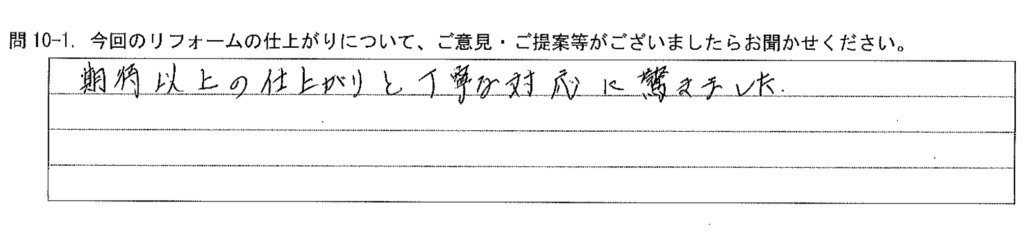 問10-1. 今回のリフォームの仕上がりについて、ご意見・ご提案等がございましたらお聞かせください。
期待以上の仕上がりと丁寧な対応に驚きました.